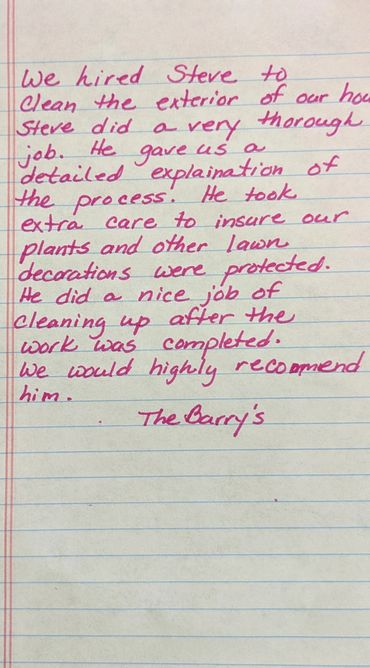 We hired Steve to
clean the exterior of our hou
Steve did a very thorough
job. He gave us a
detailed explaination of
the process. He took
extra care to insure our
plants and other lawn
decorations were protected.
He did a nice job of
cleaning up after the
work was completed.
We would highly recommend
him.
The Barry's